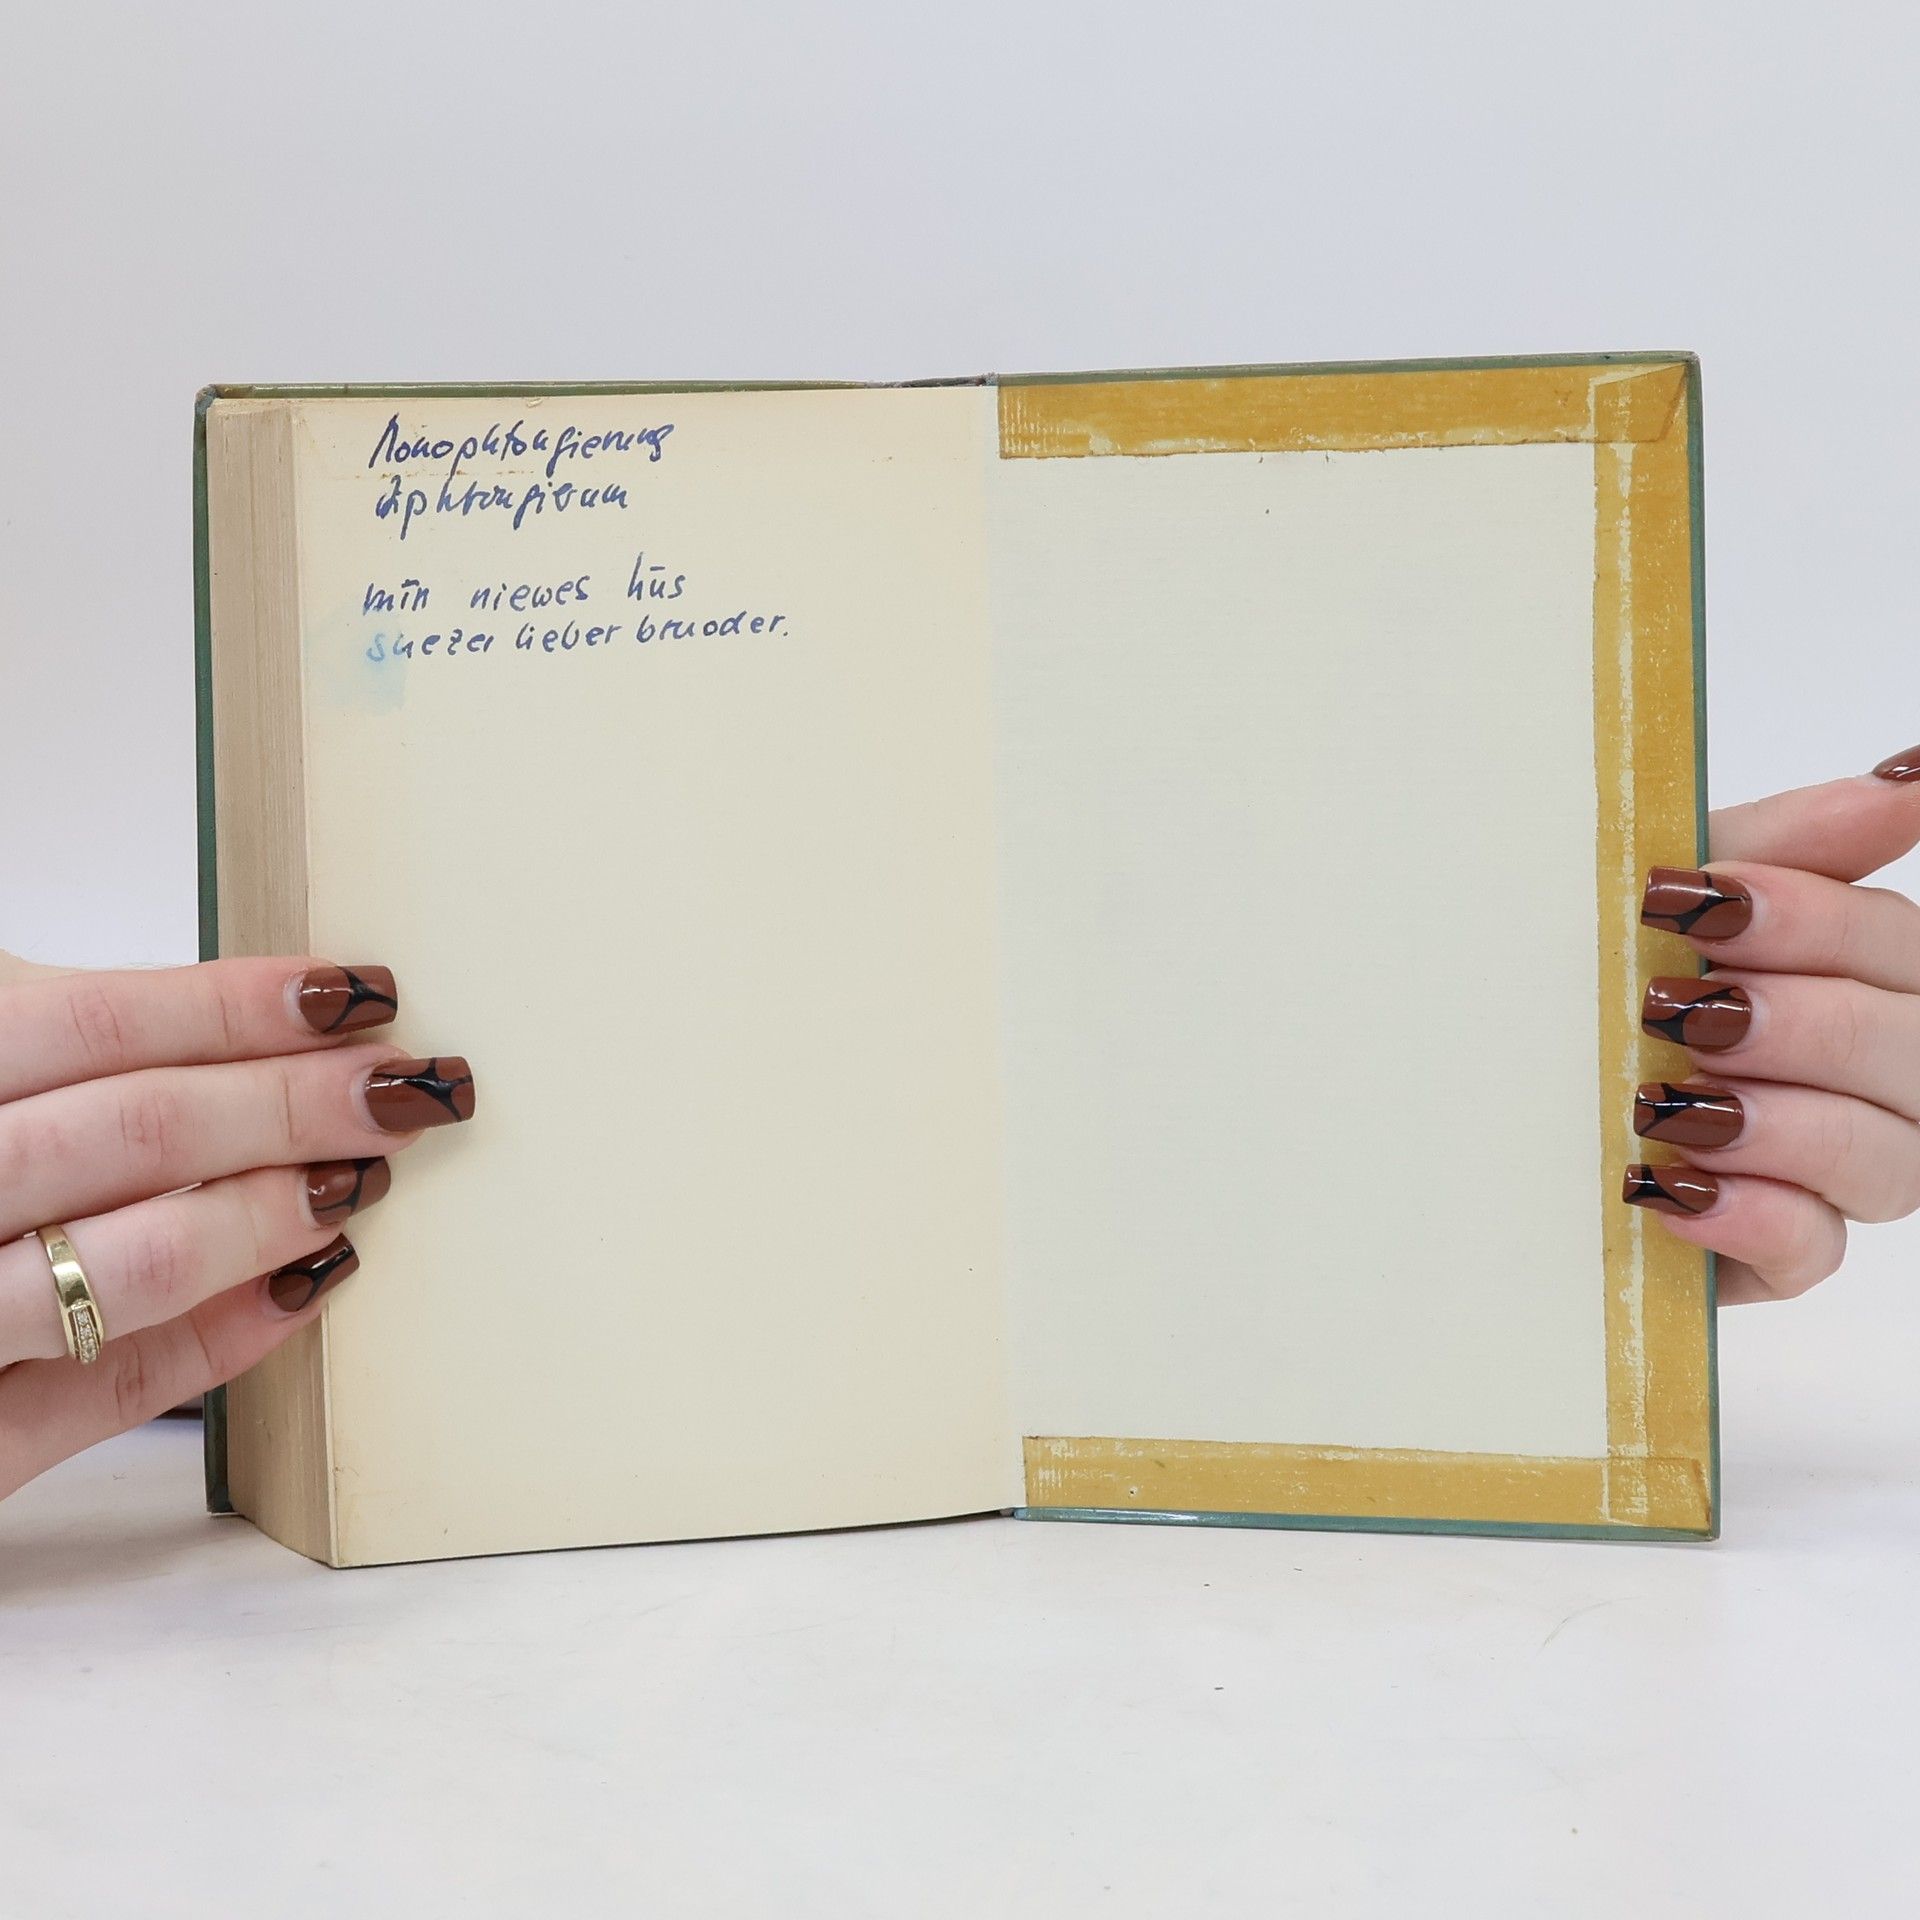 Monophtongierung
Diphtongierum
mīn niewes hūs
suezer lieber bruoder.